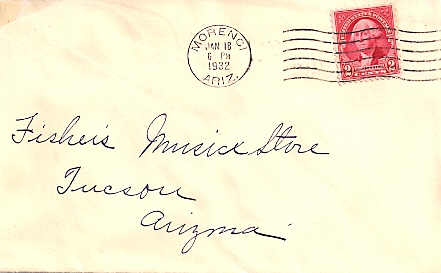 MORENCI
JAN 18
6 PM
1932
ARIZ.
2 2
Fisher's Music Store
Tucson
Arizona